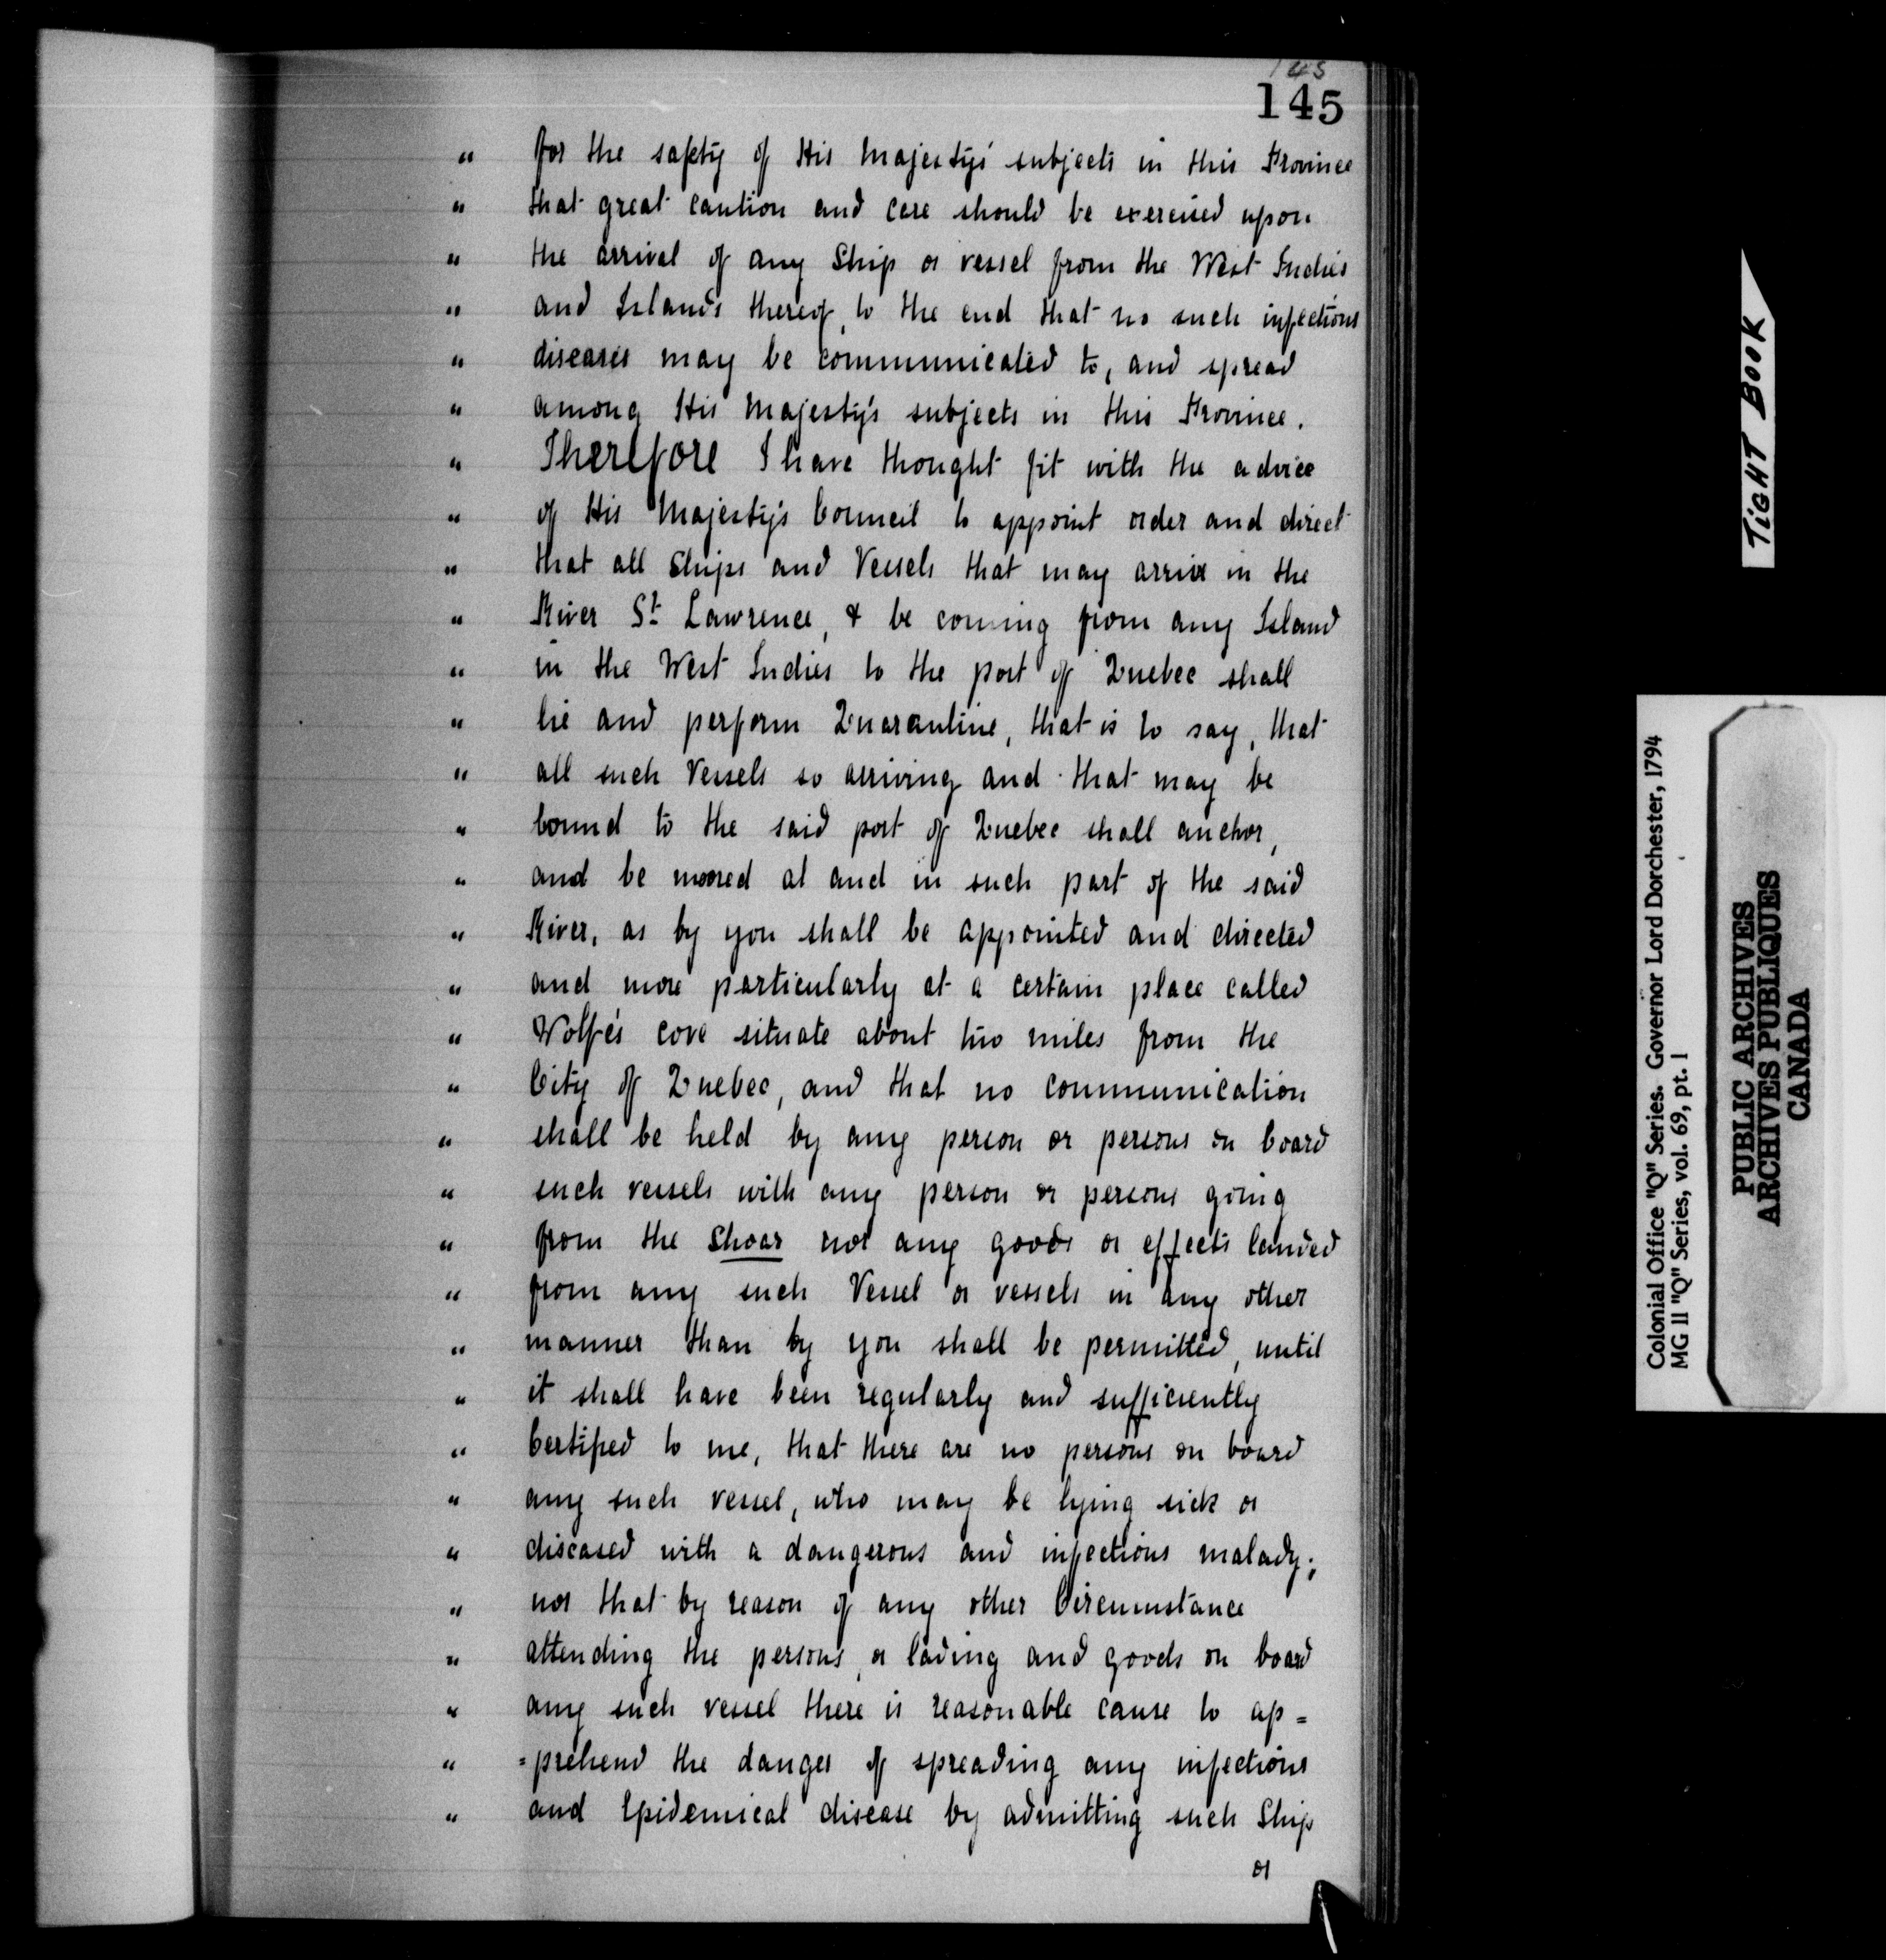 145
145
" for the safety of His Majestys' subjects in this Province
" that great caution and care should be exercised upon
" the arrival of any Ship or vessel from the West Indies
" and Islands thereof, to the end that no such infectious
" diseases may be communicated to, and spread
" among His Majesty's subjects in this Province.
" Therefore I have thought fit with the advice
" of His Majesty's Council to appoint order and direct
" that all Ships and Vessels that may arrive in the
" River St Lawrence, & be coming from any Island
" in the West Indies to the port of Quebec shall
" lie and perform Quarantine, that is to say, that
" all such Vessels so arriving and that may be
" bound to the said port of Quebec shall anchor,
" and be moored at and in such part of the said
" River, as by you shall be appointed and directed
" and more particularly at a certain place called
" Wolfe's cove situate about two miles from the
" City of Quebec, and that no communication
" shall be held by any person or persons on board
" such vessels with any person or persons going
" from the Shoar nor any goods or effects landed
" from any such Vessel or vessels in any other
" manner than by you shall be permitted, until
" it shall have been regularly and sufficiently
" Certified to me, that there are no persons on board
" any such vessel, who may be lying sick or
" diseased with a dangerous and infectious malady;
" nor that by reason of any other Circumstance
" attending the persons, or lading and goods on board
" any such vessel there is reasonable cause to ap=
" =prehend the danger of spreading any infectious
" and Epidemical disease by admitting such Ship
or
TIGHT BOOK
Colonial Office "Q" Series. Governor Lord Dorchester, 1794
MG 11 "Q" Series, vol. 69, pt. 1
PUBLIC ARCHIVES
ARCHIVES PUBLIQUES
CANADA